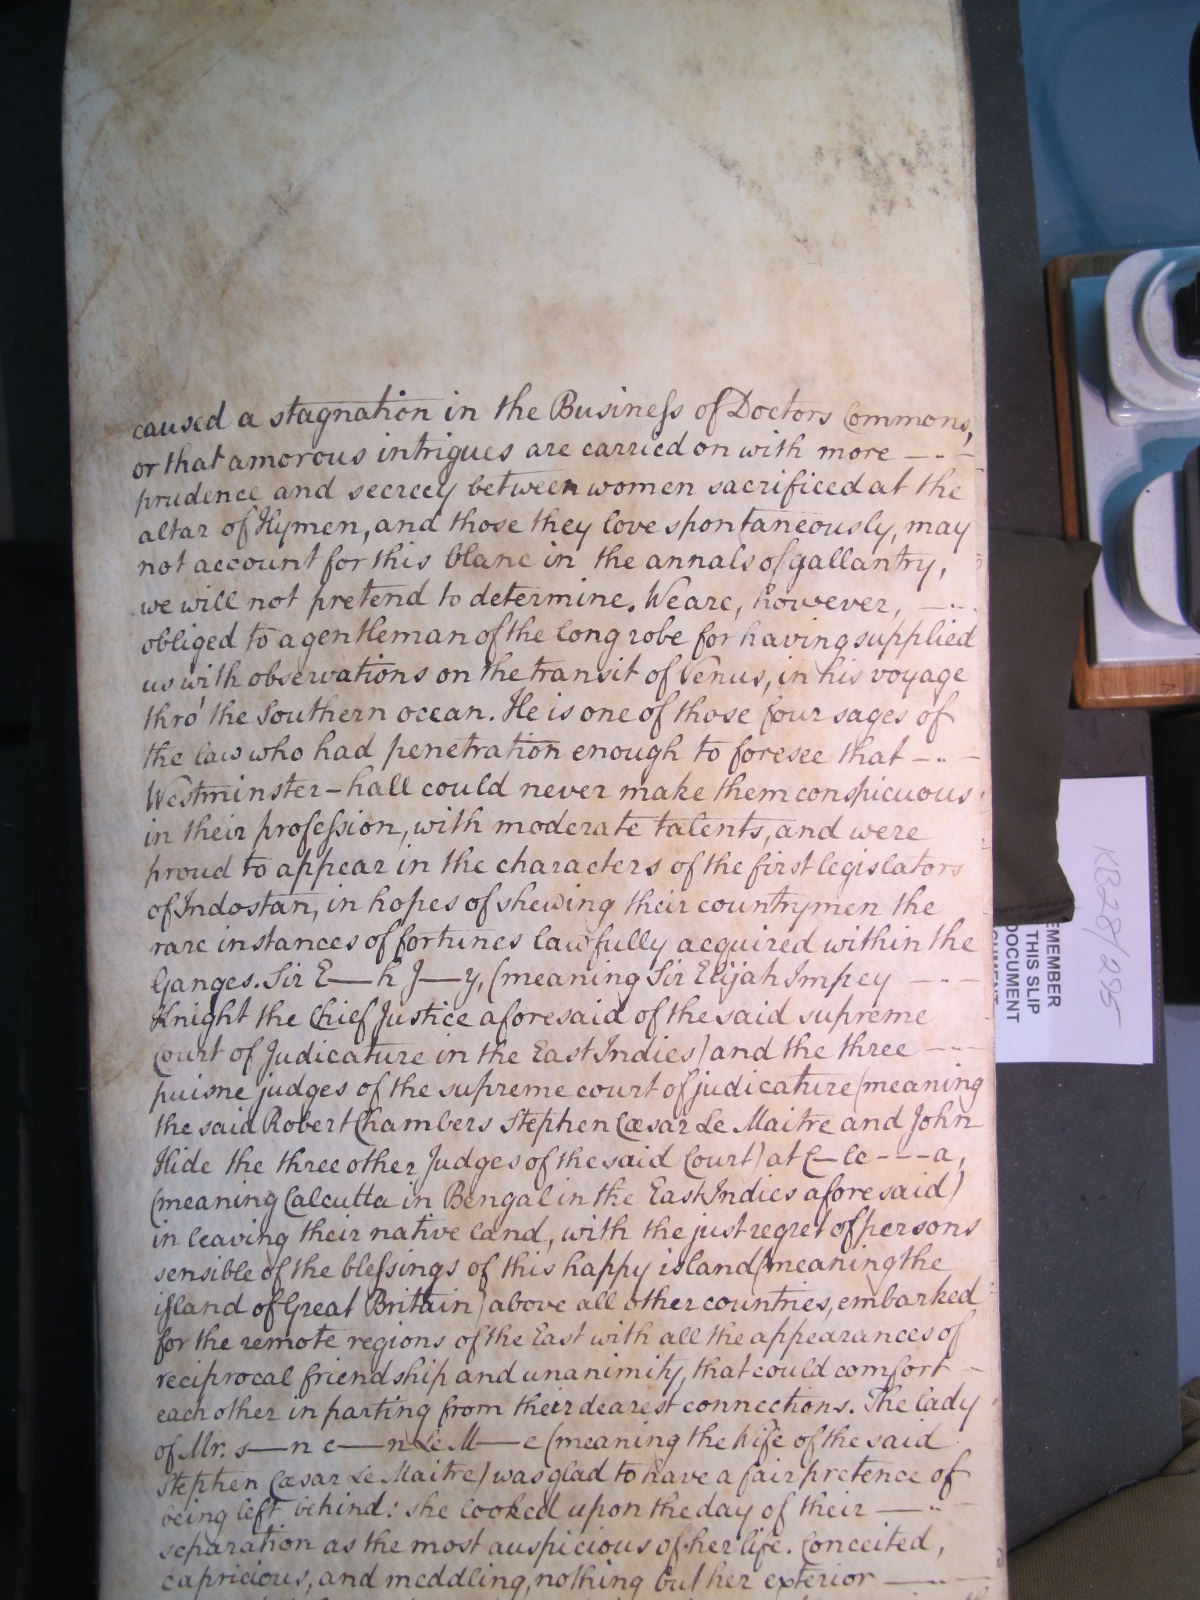 caused a stagnation in the Business of Doctors Commons,
or that amorous intrigues are carried on with more —..—
prudence and secrecy between women sacrificed at the
altar of Hymen, and those they love spontaneously, may
not account for this blanc in the annals of gallantry,
we will not pretend to determine. We are, however, —..
obliged to a gentleman of the long robe for having supplied
us with observations on the transit of Venus, in his voyage
thro' the Southern ocean. He is one of those four sages of
the law who had penetration enough to foresee that —..—
Westminster-hall could never make them conspicuous
in their profession, with moderate talents, and were
proud to appear in the characters of the first legislators
of Indostan, in hopes of shewing their countrymen the
rare instances of fortunes lawfully acquired within the
Ganges. Sir E—h J—y, (meaning Sir Elijah Impey —..—
Knight the Chief Justice aforesaid of the said supreme
Court of Judicature in the East Indies) and the three —..—
puisne judges of the supreme court of judicature (meaning
the said Robert Chambers Stephen Cæsar Le Maitre and John
Hide the three other Judges of the said Court) at C—lc---a,
(meaning Calcutta in Bengal in the East Indies aforesaid)
in leaving their native land, with the just regret of persons
sensible of the blessings of this happy island (meaning the
island of Great Britain) above all other countries, embarked
for the remote regions of the East with all the appearances of
reciprocal friendship and unanimity, that could comfort —
each other in parting from their dearest connections. The lady
of Mr. s—n c—n Le M—e (meaning the Wife of the said
Stephen Cæsar Le Maitre) was glad to have a fair pretence of
being left behind: she looked upon the day of their —..—
separation as the most auspicious of her life. Conceited,
capricious, and meddling, nothing but her exterior —..—
KB28/295
EMEMBER
THIS SLIP
DOCUMENT